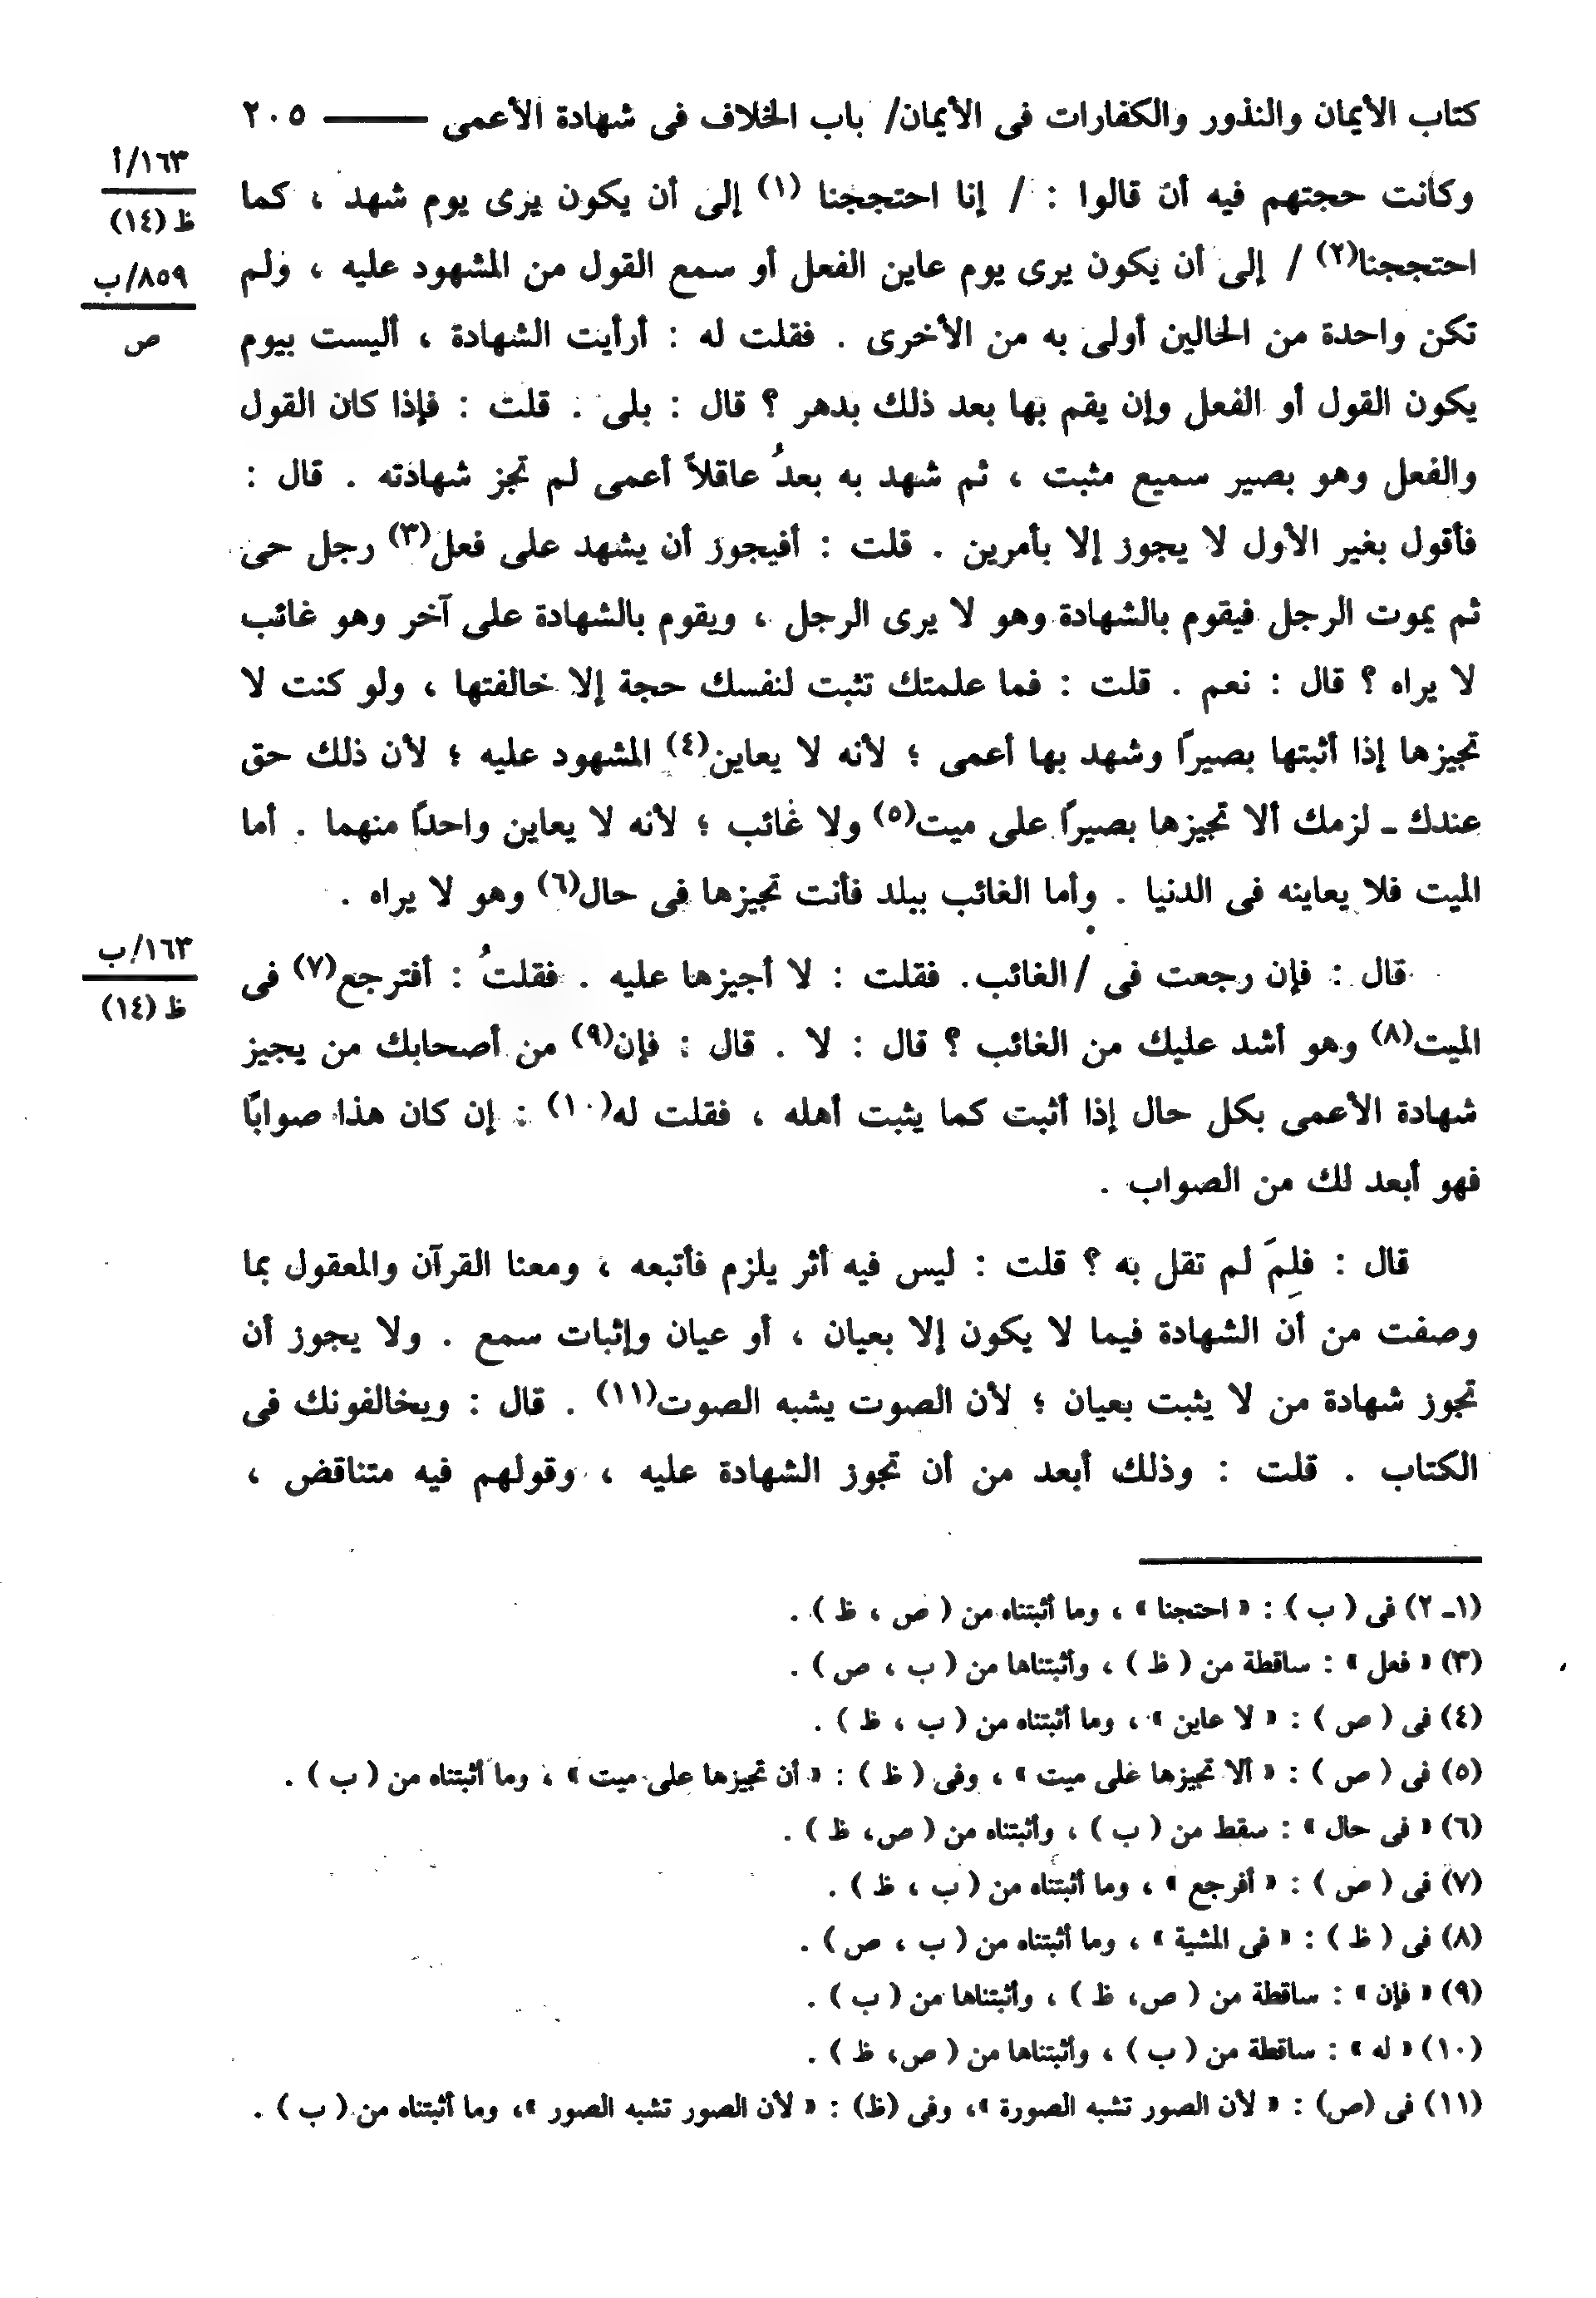 كتاب الأيمان والنذور والكفارات فى الأيمان/ باب الخلاف فى شهادة الأعمى ——— ٢٠٥
١٦٣/أ
ظ (١٤)
وكانت حجتهم فيه أن قالوا : / إنا احتججنا (١) إلى أن يكون يرى يوم شهد ، كما
٨٥٩/ب
ص
احتججنا(٢) / إلى أن يكون يرى يوم عاين الفعل أو سمع القول من المشهود عليه ، ولم
تكن واحدة من الحالين أولى به من الأخرى . فقلت له : أرأيت الشهادة ، أليست بيوم
يكون القول أو الفعل وإن يقم بها بعد ذلك بدهر ؟ قال : بلى . قلت : فإذا كان القول
والفعل وهو بصير سميع مثبت ، ثم شهد به بعدُ عاقلاً أعمى لم تجز شهادته . قال :
فأقول بغير الأول لا يجوز إلا بأمرين . قلت : أفيجوز أن يشهد على فعل(٣) رجل حى
ثم يموت الرجل فيقوم بالشهادة وهو لا يرى الرجل ، ويقوم بالشهادة على آخر وهو غائب
لا يراه ؟ قال : نعم . قلت : فما علمتك تثبت لنفسك حجة إلا خالفتها ، ولو كنت لا
تجيزها إذا أثبتها بصيراً وشهد بها أعمى ؛ لأنه لا يعاين(٤) المشهود عليه ؛ لأن ذلك حق
عندك ـ لزمك ألا تجيزها بصيراً على ميت(٥) ولا غائب ؛ لأنه لا يعاين واحداً منهما . أما
الميت فلا يعاينه فى الدنيا . وأما الغائب ببلد فأنت تجيزها فى حال(٦) وهو لا يراه .
١٦٣/ب
ظ (١٤)
قال : فإن رجعت فى / الغائب. فقلت : لا أجيزها عليه . فقلتُ : أفترجع(٧) فى
الميت(٨) وهو أشد عليك من الغائب ؟ قال : لا . قال : فإن(٩) من أصحابك من يجيز
شهادة الأعمى بكل حال إذا أثبت كما يثبت أهله ، فقلت له(١٠) : إن كان هذا صوابًا
فهو أبعد لك من الصواب .
قال : فلِمَ لم تقل به ؟ قلت : ليس فيه أثر يلزم فأتبعه ، ومعنا القرآن والمعقول بما
وصفت من أن الشهادة فيما لا يكون إلا بعيان ، أو عيان وإثبات سمع . ولا يجوز أن
تجوز شهادة من لا يثبت بعيان ؛ لأن الصوت يشبه الصوت(١١) . قال : ويخالفونك فى
الكتاب . قلت : وذلك أبعد من أن تجوز الشهادة عليه ، وقولهم فيه متناقض ،
(١ـ ٢) فى ( ب ) : « احتجنا » ، وما أثبتناه من ( ص ، ظ ) .
(٣) « فعل » : ساقطة من ( ظ ) ، وأثبتناها من ( ب ، ص ) .
(٤) فى ( ص ) : « لا عاين » ، وما أثبتناه من ( ب ، ظ ) .
(٥) فى ( ص ) : « ألا تجيزها على ميت » ، وفى ( ظ ) : « أن تجيزها على ميت » ، وما أثبتناه من ( ب ) .
(٦) « فى حال » : سقط من ( ب ) ، وأثبتناه من ( ص، ظ ) .
(٧) فى ( ص ) : « أفرجع » ، وما أثبتناه من ( ب ، ظ ) .
(٨) فى ( ظ ) : « فى المشية » ، وما أثبتناه من ( ب ، ص ) .
(٩) « فإن » : ساقطة من ( ص، ظ ) ، وأثبتناها من ( ب ) .
(١٠) « له » : ساقطة من ( ب ) ، وأثبتناها من ( ص، ظ ) .
(١١) فى (ص) : « لأن الصور تشبه الصورة »، وفى (ظ) : « لأن الصور تشبه الصور »، وما أثبتناه من ( ب ) .